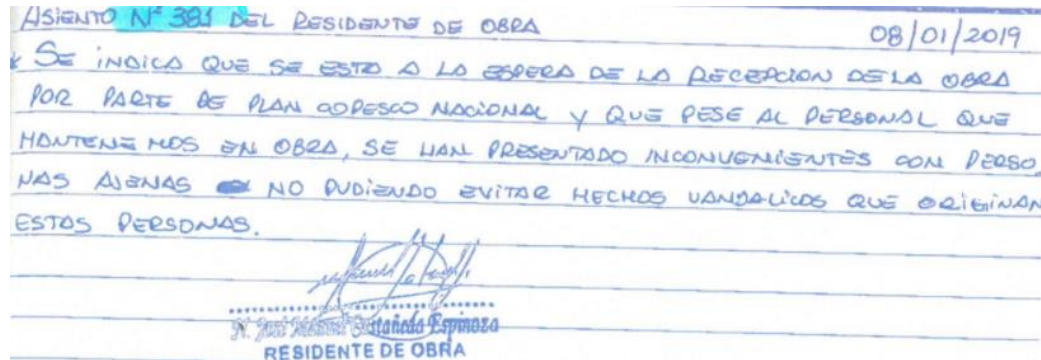 ASIENTO Nº 381 DEL RESIDENTE DE OBRA
08/01/2019
SE INDICA QUE SE ESTA A LA ESPERA DE LA RECEPCION DE LA OBRA
POR PARTE DE PLAN COPESCO NACIONAL Y QUE PESE AL PERSONAL QUE
MANTENEMOS EN OBRA, SE HAN PRESENTADO INCONVENIENTES CON PERSO
NAS AJENAS NO PUDIENDO EVITAR HECHOS VANDALICOS QUE ORIGINAN
ESTAS PERSONAS.
Castañeda Espinoza
RESIDENTE DE OBRA